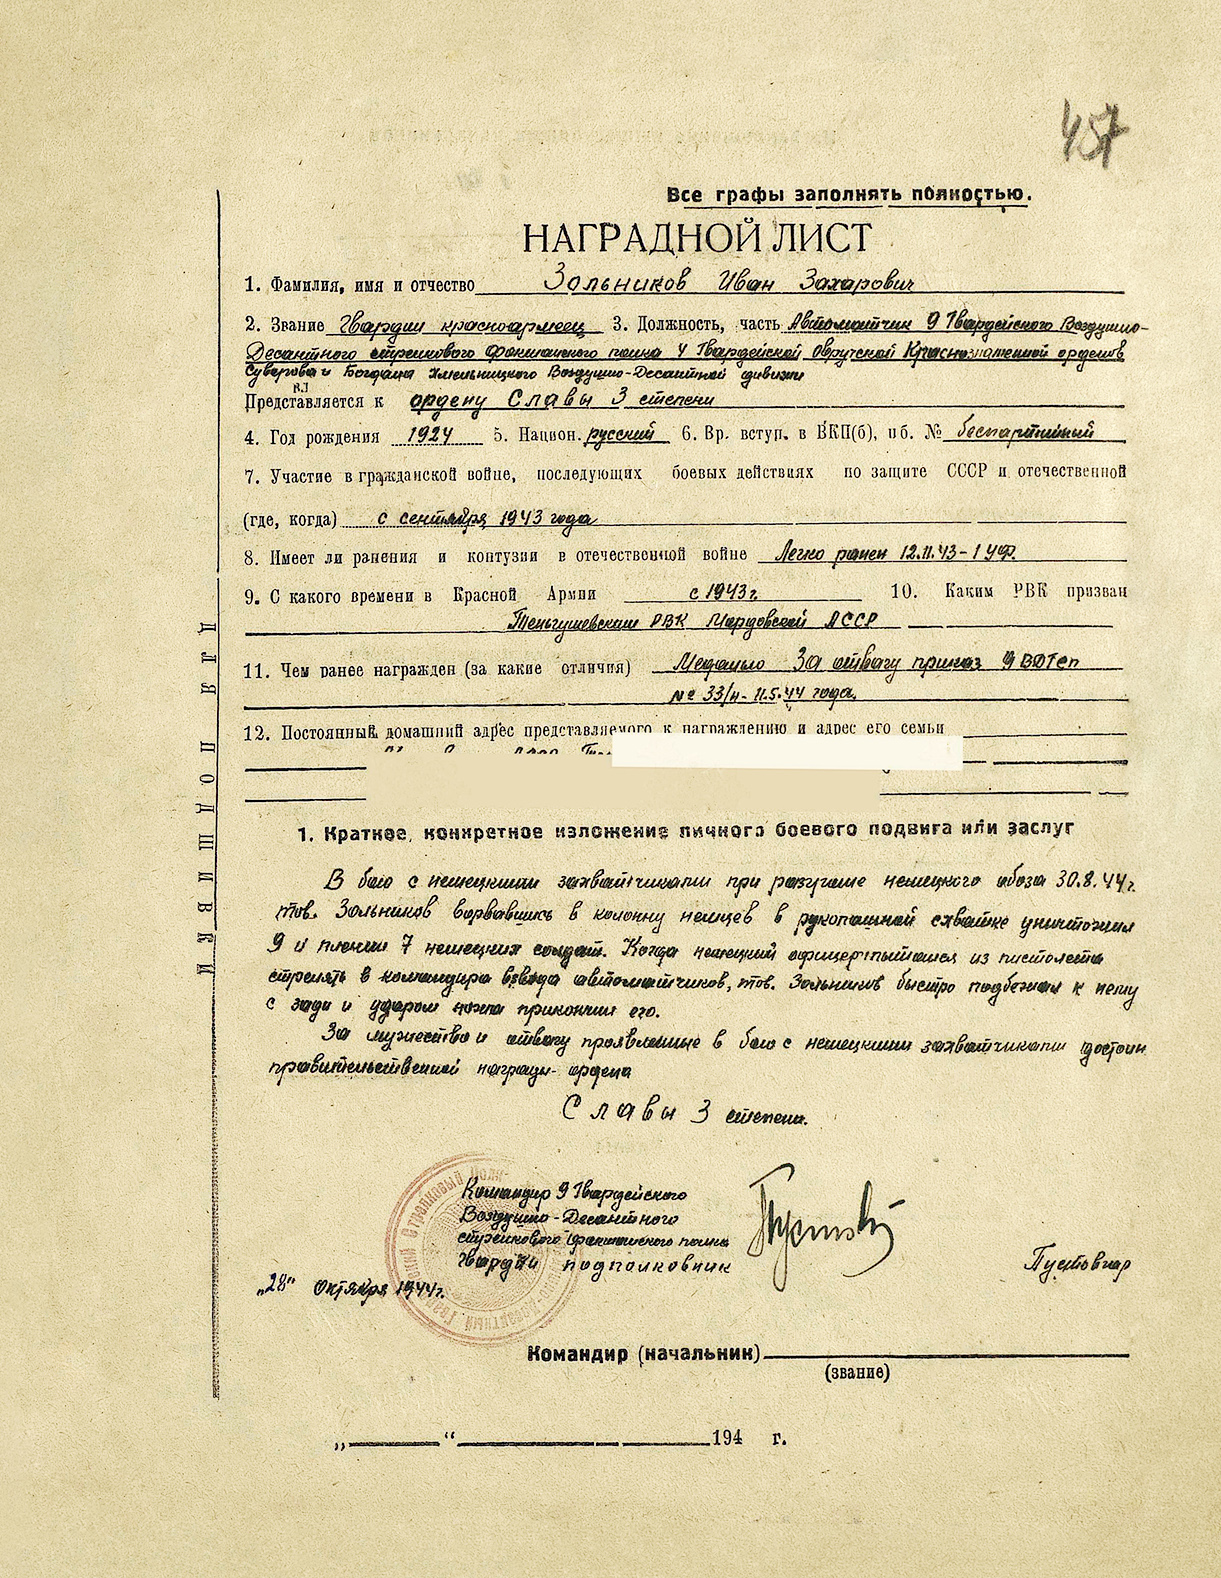 457
Все графы заполнять полностью.
НАГРАДНОЙ ЛИСТ
1. Фамилия, имя и отчество Зольников Иван Захарович
2. Звание Гвардии красноармеец 3. Должность, часть Автоматчик 9 Гвардейского Воздушно-
Десантного стрелкового Фокшанского полка 4 Гвардейской Овручской Краснознаменной орденов
Суворова и Богдана Хмельницкого Воздушно-Десантной дивизии
Представляется к ордену Славы 3 степени
4. Год рождения 1924 5. Национ. русский 6. Вр. вступ. в ВКП(б), пб. № беспартийный
7. Участие в гражданской войне, последующих боевых действиях по защите СССР и отечественной
(где, когда) с сентября 1943 года
8. Имеет ли ранения и контузии в отечественной войне Легко ранен 12.11.43 - 1 УФ.
9. С какого времени в Красной Армии с 1943 г. 10. Каким РВК призван
Теньгушевским РВК Мордовской АССР
11. Чем ранее награжден (за какие отличия) Медалью За отвагу приказ 9 ВДГсп
№ 33/н - 11.5.44 года.
12. Постоянный домашний адрес представляемого к награждению и адрес его семьи
1. Краткое, конкретное изложение личного боевого подвига или заслуг
В бою с немецкими захватчиками при разгроме немецкого обоза 30.8.44 г.
тов. Зольников ворвавшись в колонну немцев в рукопашной схватке уничтожил
9 и пленил 7 немецких солдат. Когда немецкий офицер пытался из пистолета
стрелять в командира взвода автоматчиков, тов. Зольников быстро подбежал к нему
с зади и ударом ножа прикончил его.
За мужество и отвагу проявленные в бою с немецкими захватчиками достоин
правительственной награды - ордена
Славы 3 степени.
Командир 9 Гвардейского
Воздушно-Десантного
стрелкового Фокшанского полка
Гвардии подполковник Пустовгар
„28" Октября 1944 г.
Командир (начальник)
(звание)
„ “ 194 г.
ДЛЯ ПОДШИВКИ